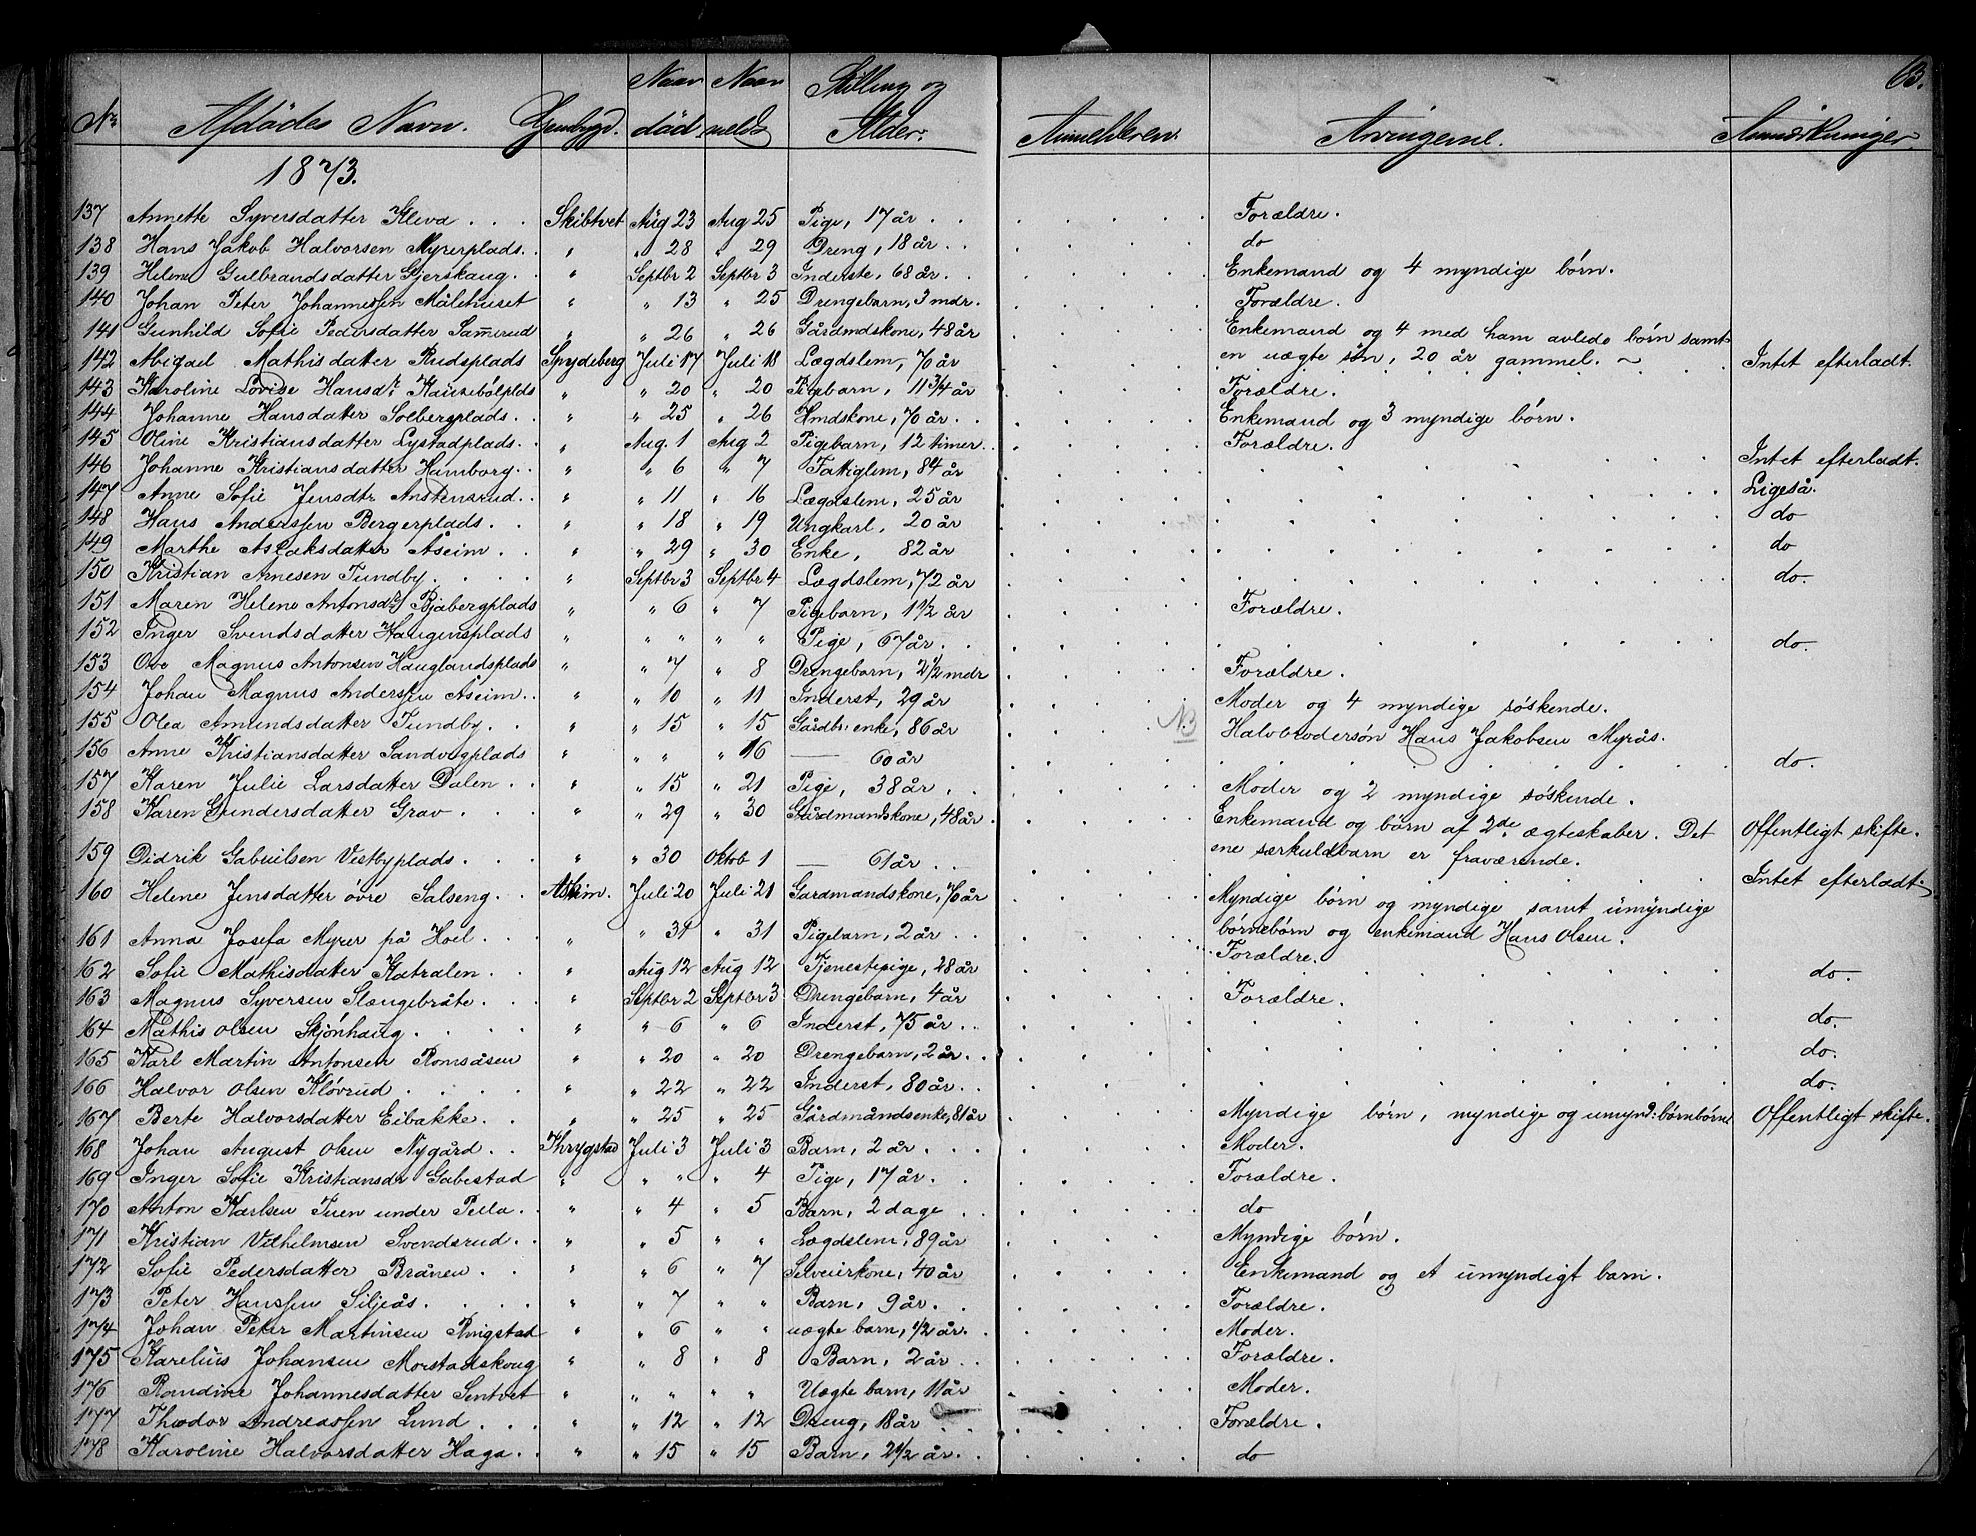 63.
Nr Afdødes Navn. Gjenbygd. Naar død Naar meldt Stilling og Alder. Anmelderen. Arvingerne. Anmærkninger.
1873.
137 Annette Syversdatter Kleva . . . Skibtvet Aug 23 Aug 25 Pige, 17 år . . Forældre.
138 Hans Jakob Halvorsen Myrerplads . . " " 28 " 29 Dreng, 18 år . . do
139 Helene Gulbrandsdatter Gjerskaug . . " Septbr 2 Septbr 3 Inderste, 68 år . Enkemand og 4 myndige børn.
140 Johan Peter Johannessen Målehuset " " 13 " 25 Drengebarn, 3 mdr. Forældre.
141 Gunhild Sofie Pedersdatter Samrud " " 26 " 26 Gårdmdskone, 48 år Enkemand og 4 med ham avlede børn samt
en uægte søn, 20 år gammel. ~
142 Abigael Mathisdatter Rudsplads Spydeberg Juli 17 Juli 18 Lægdslem, 70 år Intet efterladt.
143 Karoline Lovise Hansdr Knusebølplds " " 20 " 20 Pigebarn, 11 3/4 år Forældre.
144 Johanne Hansdatter Solbergplads . . " " 25 " 26 Hmdskone, 70 år . . Enkemand og 3 myndige børn.
145 Oline Kristiansdatter Lystadplads . . " Aug. 1 Aug 2 Pigebarn, 12 timer . Forældre.
146 Johanne Kristiansdatter Hamborg . . " " 6 " 7 Fattiglem, 84 år Intet efterladt.
147 Anne Sofie Jensdtr Anstensrud . . " " 11 " 16 Lægdslem, 25 år Ligeså.
148 Hans Anderssen Bergerplads . . " " 18 " 19 Ungkarl, 20 år do
149 Marthe Aslaksdatter Åseim . . " " 29 " 30 Enke, 82 år do
150 Kristian Arnesen Tundby . . . " Septbr 3 Septbr 4 Lægdslem, 72 år do.
151 Maren Helene Antonsdr Bjabergplads " " 6 " 7 Pigebarn, 1 1/2 år Forældre.
152 Inger Svendsdatter Haugensplads " " " " " Pige, 67 år . . do.
153 Ove Magnus Antonsen Hauglandsplads " " 7 " 8 Drengebarn, 2 1/2 mdr Forældre.
154 Johan Magnus Anderssen Åseim . . " " 10 " 11 Inderst, 29 år Moder og 4 myndige søskende.
155 Olea Amundsdatter Tundby . . " " 15 " 15 Gårdbr: enke, 86 år NB Halvbrodersøn Hans Jakobsen Myrås.
156 Anne Kristiansdatter Sandvigplads " " " " 16 — 60 år do.
157 Karen Julie Larsdatter Dalen . . " " 15 " 21 Pige, 38 år . . Moder og 2 myndige søskende.
158 Karen Gundersdatter Grav . . " " 29 " 30 Gårdmandskone, 48 år . Enkemand og børn af 2de ægteskaber. Det
ene særkuldbarn er fraværende. Offentligt skifte.
159 Didrik Gabrielsen Vestbyplads . . " " 30 Oktob 1 — 61 år . . Intet efterladt.
160 Helene Jensdatter øvre Salseng . . Askim. Juli 20 Juli 21 Gardmandskone, 70 år Myndige børn og myndige samt umyndige
børnebørn og enkemand Hans Olsen.
161 Anna Josefa Myrer på Hoel . . " " 31 " 31 Pigebarn, 2 år . . Forældre.
162 Sofie Mathisdatter Katralen . . " Aug 12 Aug 12 Tjenestepige, 28 år do.
163 Magnus Syversen Slangebråte . . " Septbr 2 Septbr 3 Drengebarn, 4 år Forældre.
164 Mathis Olsen Skjønhaug . . . " " 6 " 6 Inderst, 75 år . . do.
165 Karl Martin Antonsen Romsåsen " " 20 " 20 Drengebarn, 2 år . . do.
166 Halvor Olsen Kløvrud . . . . " " 22 " 22 Inderst, 80 år . . do.
167 Berte Halvorsdatter Eibakke . . " " 25 " 25 Gårdmåndsenke, 81 år Myndige børn, myndige og umynd: børnbørn Offentligt skifte.
168 Johan August Olsen Nygård . . Thrygstad Juli 3 Juli 3 Barn, 2 år . . . Moder.
169 Inger Sofie Kristiansdr Gabestad " " " " 4 Pige, 17 år . . Forældre.
170 Anton Karlsen Tuen under Pula . . " " 4 " 5 Barn, 2 dage . . do
171 Kristian Vilhelmsen Svendsrud . . " " 5 " " Lægdslem, 89 år Myndige børn.
172 Sofie Pedersdatter Bråneu . . " " 6 " 7 Selveierkone, 40 år Enkemand og et umyndigt barn.
173 Peter Hanssen Siljeås . . . . " " 7 " " Barn, 9 år . . Forældre.
174 Johan Peter Martinsen Ringstad " " 6 " " uægte barn, 1/2 år . . Moder.
175 Karelius Johansen Morstadskoug " " 8 " 8 Barn, 2 år . . Forældre.
176 Randine Johannesdatter Sentvet " " " " " Uægte barn, 11 år Moder.
177 Theodor Andreassen Lund . . . " " 12 " 12 Dreng, 18 år Forældre.
178 Karoline Halvorsdatter Haga . . " " 15 " 15 Barn, 2 1/2 år . . do